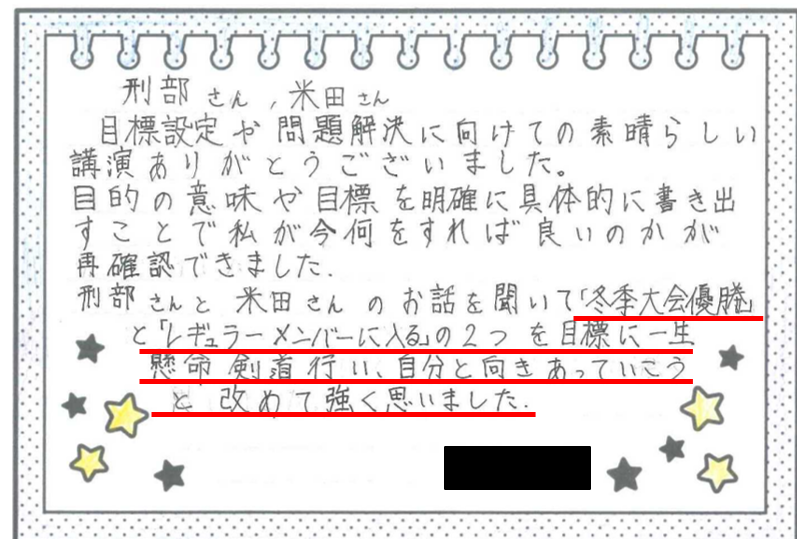 刑部さん,米田さん
目標設定や問題解決に向けての素晴らしい
講演ありがとうございました。
目的の意味や目標を明確に具体的に書き出
すことで私が今何をすれば良いのかが
再確認できました.
刑部さんと米田さんのお話を聞いて「冬季大会優勝」
と「レギュラーメンバーに入る」の2つを目標に一生
懸命剣道行い、自分と向きあっていこう
と改めて強く思いました.